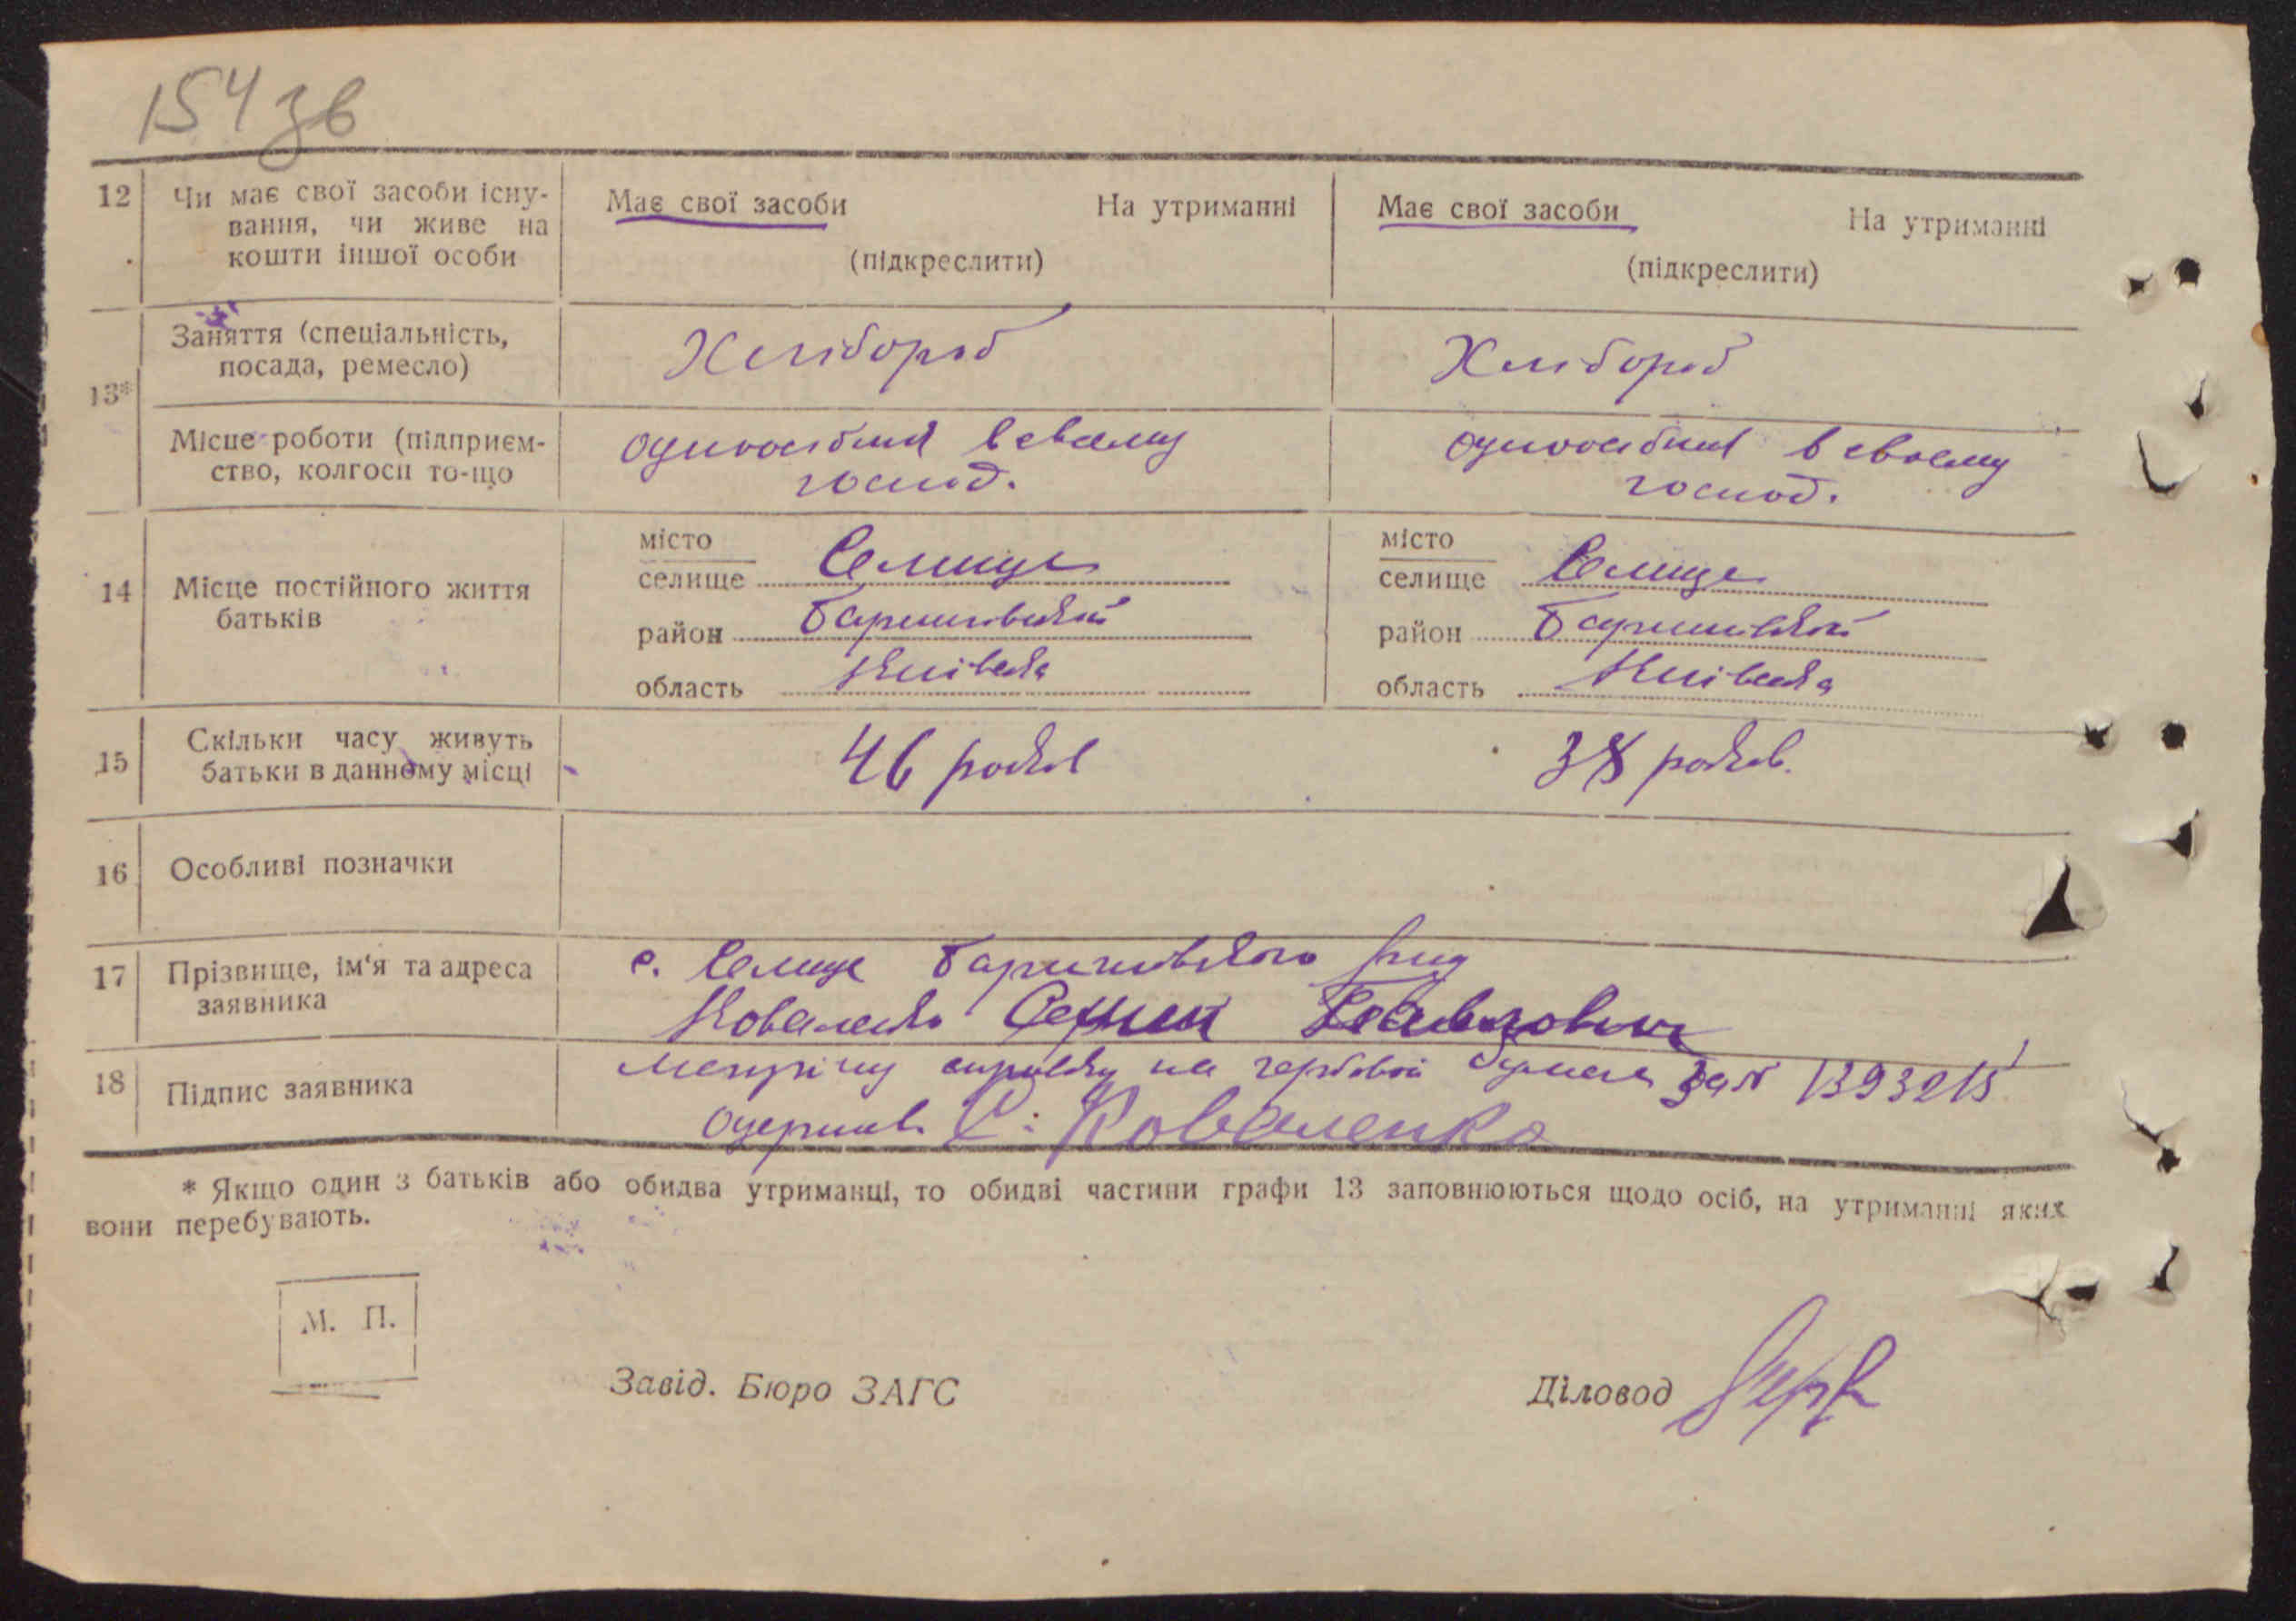 154 зв
12 Чи має свої засоби існу-
вання, чи живе на
кошти іншої особи
Має свої засоби На утриманні
(підкреслити)
Має свої засоби На утриманні
(підкреслити)
13*
Заняття (спеціальність,
посада, ремесло)
Хлібороб
Хлібороб
Місце роботи (підприєм-
ство, колгосп то-що
одноосібник в своєму
господ.
одноосібник в своєму
господ.
14 Місце постійного життя
батьків
місто
селище Селище
район Баришівський
область Київська
місто
селище Селище
район Баришівський
область Київська
15 Скільки часу живуть
батьки в данному місці
46 років
38 років.
16 Особливі позначки
17 Прізвище, ім'я та адреса
заявника
с. Селище Баришівського
Коваленко Павлович
18 Підпис заявника
метричну справку на гербовой бумаге за № 1393215
одержив. С. Коваленко
* Якщо один з батьків або обидва утриманці, то обидві частини графи 13 заповнюються щодо осіб, на утриманні яких
вони перебувають.
М. П.
Завід. Бюро ЗАГС
Діловод